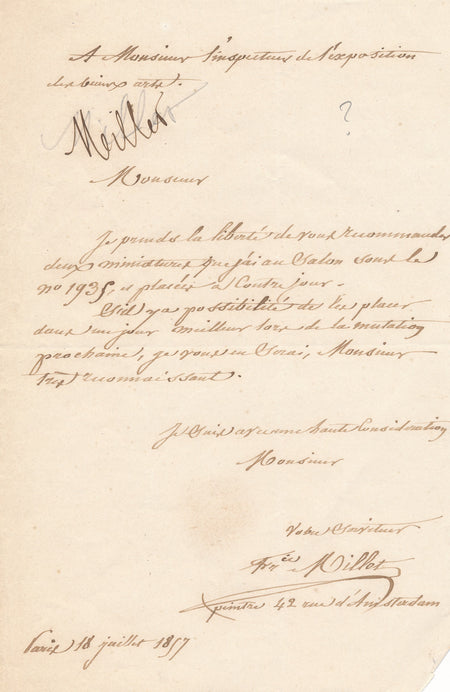 A Monsieur l'inspecteur de l'exposition
des beaux arts.
Meillet
?
Monsieur
Je prends la liberté de vous recommander
deux miniatures que j'ai au Salon sous le
no 1935, et placées à Contre jour.
S'il y a possibilité de les placer
dans un jour meilleur lors de la mutation
prochaine, je vous en serai, Monsieur
très reconnaissant.
Je suis avec une haute Considération
Monsieur
Votre Serviteur
Fréd Millet
peintre 42 rue d'Amsterdam
Paris 18 juillet 1857